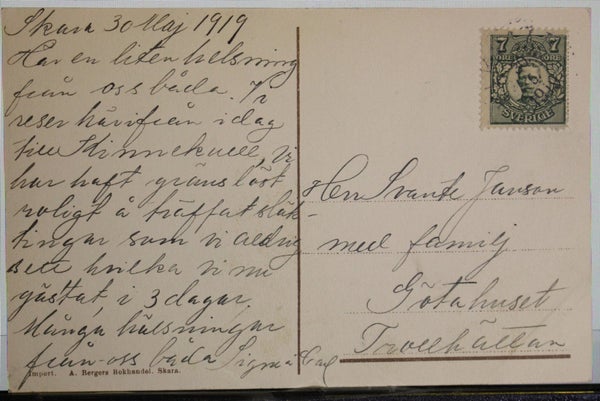 Skara 30 Maj 1919
Har en liten helsning
från oss båda. Vi
reser härifrån idag
till Kinnekulle, vi
har haft gränslöst
roligt å träffat släk-
tingar som vi aldrig
sett hvilka vi nu
gästat, i 3 dagar.
Många hälsningar
från oss båda Signe & Carl
Import. A. Bergers Bokhandel. Skara.
7 7
ÖRE ÖRE
SVERIGE
Herr Svante Janson
med familj
Götahuset
Trollhättan